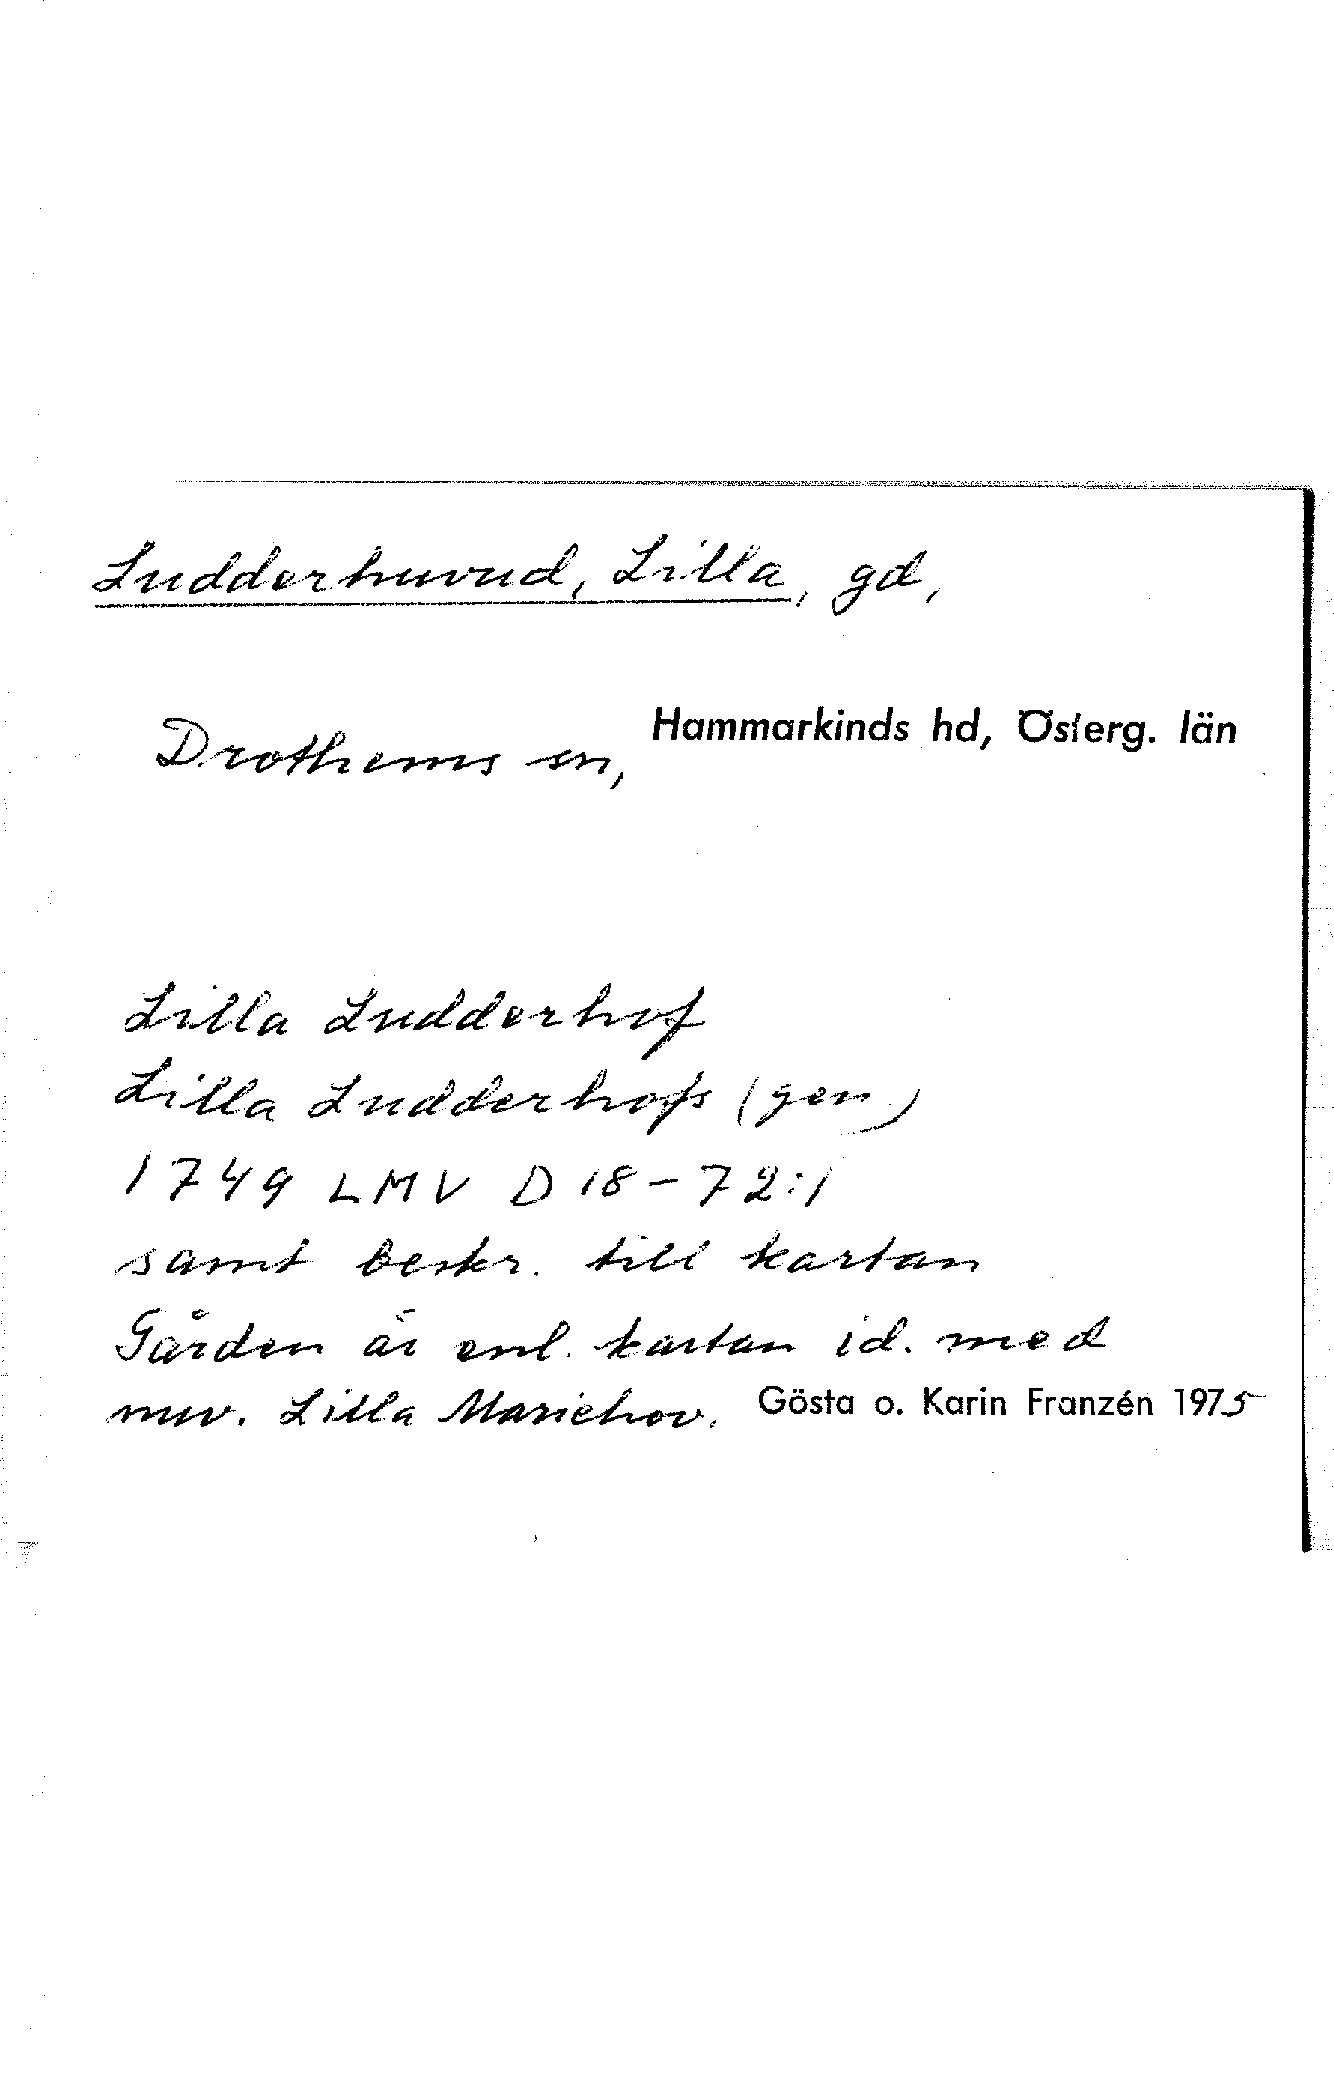 Ludderhuvud, Lilla, gd,
Drothems sn, Hammarkinds hd, Österg. län
Lilla Ludderhof
Lilla Ludderhofs (gen.)
1749 LMV D 18-72:1
samt beskr. till kartan
Gården är enl. kartan id. med
nuv. Lilla Mariehov. Gösta o. Karin Franzén 1975